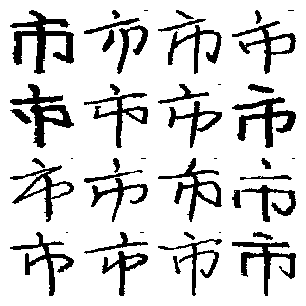 市市市市
市市市市
市市市市
市市市市